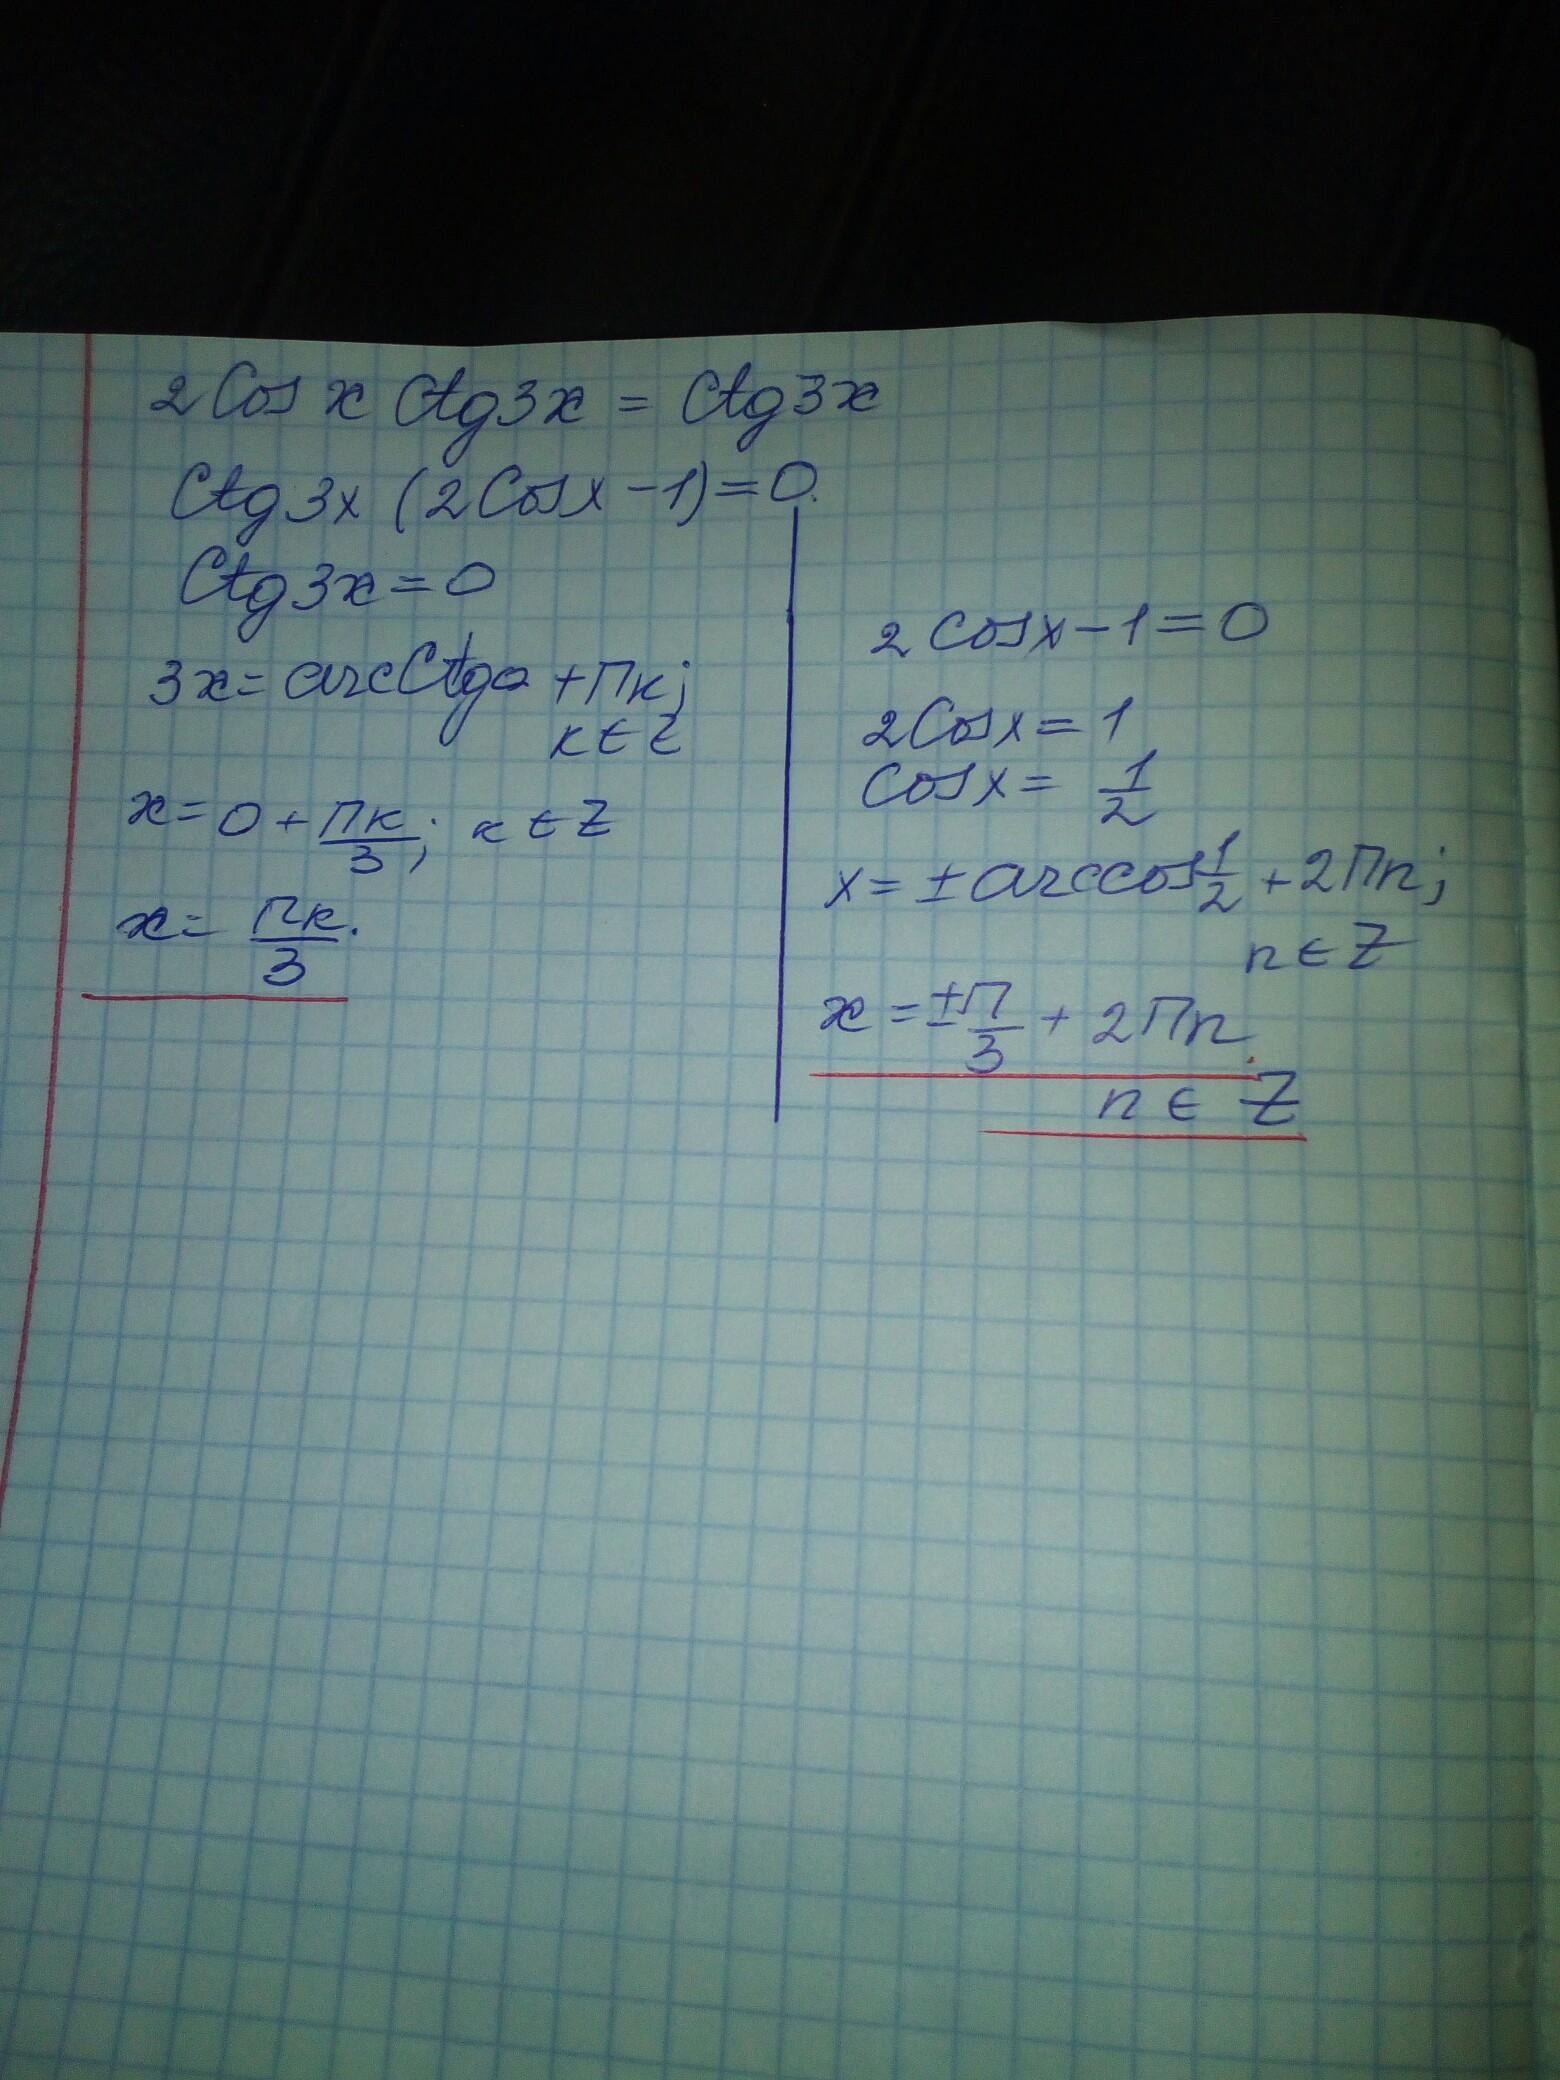 2Cos x Ctg3x = Ctg3x
Ctg3x (2Cosx -1)=0.
Ctg3x=0
3x= arcCtgo +Пк;
к∈Z
x= 0+ Пк/3; к∈Z
x= Пк/3.
2Cosx-1=0
2Cosx=1
Cosx= 1/2
x= ±arccos 1/2 +2Пn;
n∈Z
x=±П/3 + 2Пn
n∈Z